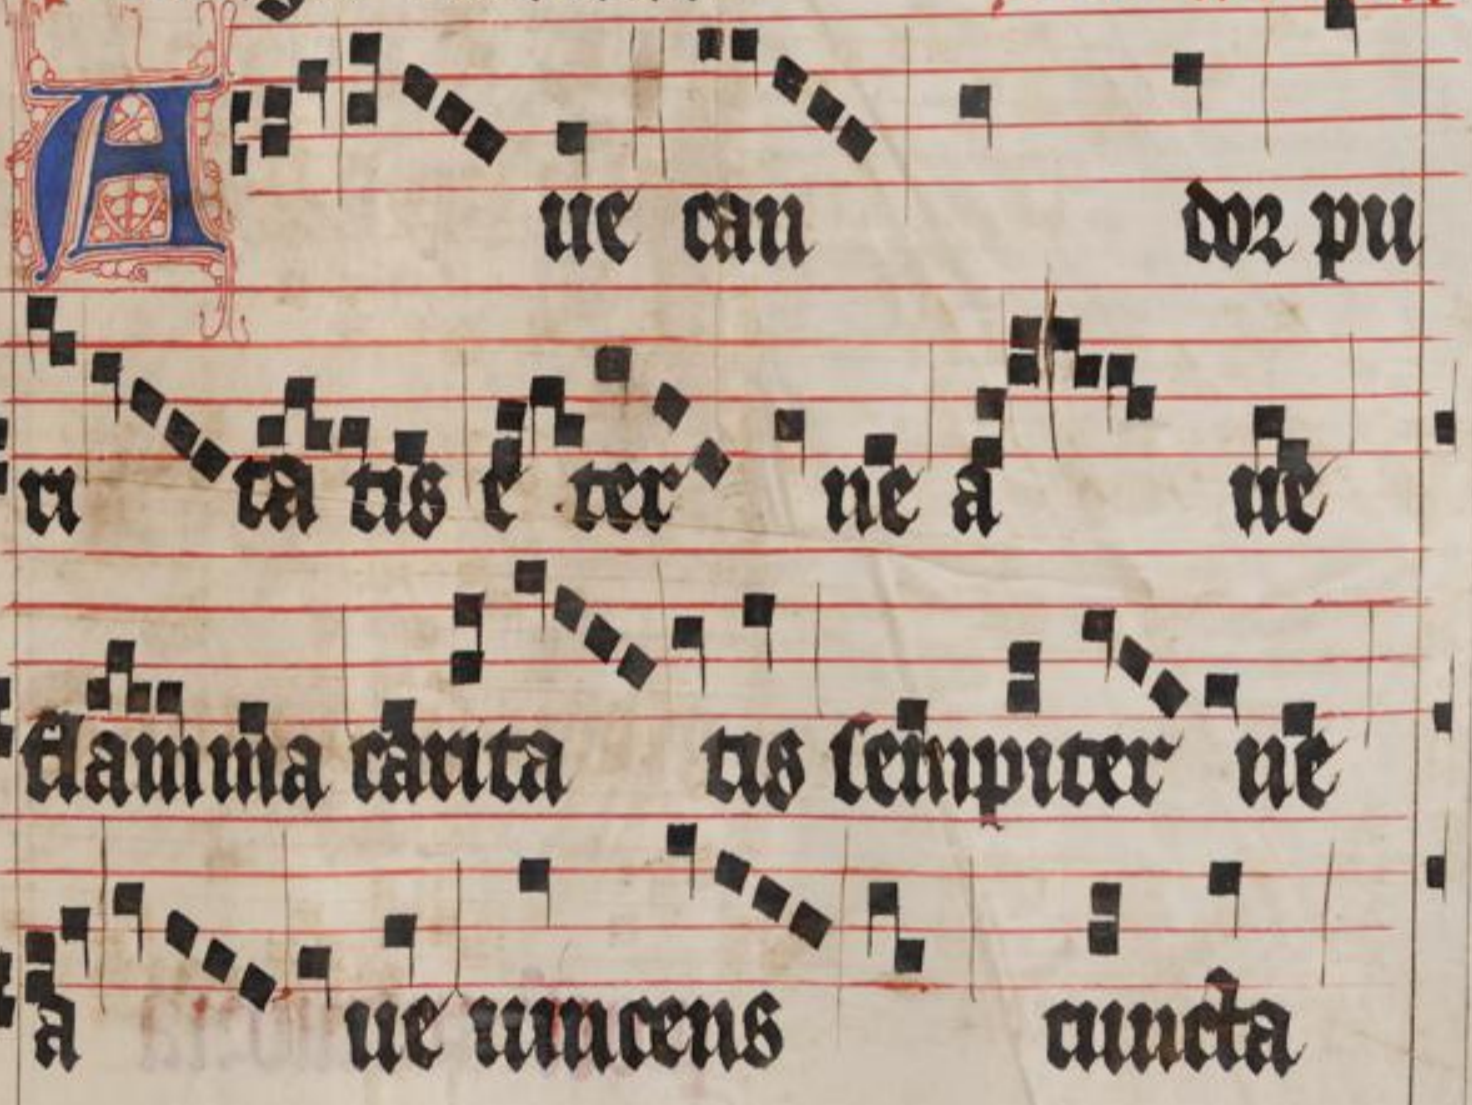 A ue can dor pu
ri ta tis e ter ne a ue
flamma carita tis sempiter ne
a ue uincens cuncta